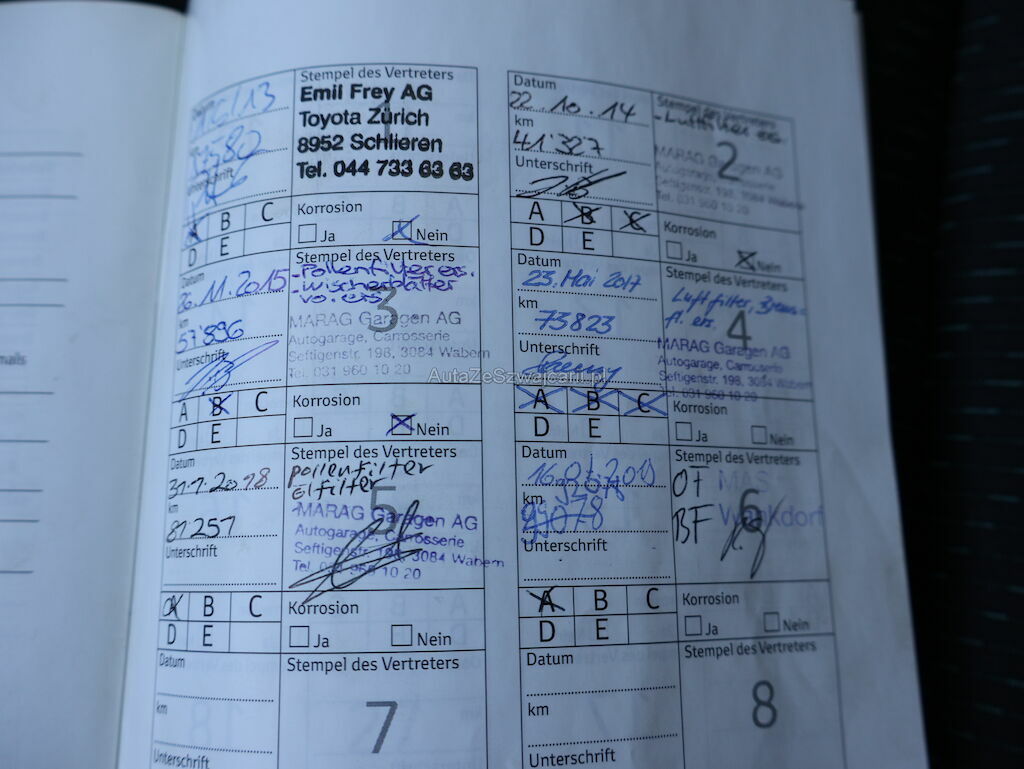 Stempel des Vertreters
Emil Frey AG
Toyota Zürich
8952 Schlieren
Tel. 044 733 63 63
1
Datum
km
Unterschrift
A B C
D E
Korrosion
Ja Nein
Datum
22.10.14
km
41'327
Unterschrift
Stempel des Vertreters
2
MARAG Garagen AG
Autogarage, Carrosserie
Seftigenstr. 198, 3084 Wabern
Tel. 031 960 10 20
A B C
D E
Korrosion
Ja Nein
Datum
26.11.2015
km
57'896
Unterschrift
Stempel des Vertreters
-Pollenfilter ers.
-Wischerblätter
vo. ers
3
MARAG Garagen AG
Autogarage, Carrosserie
Seftigenstr. 198, 3084 Wabern
Tel. 031 960 10 20
A B C
D E
Korrosion
Ja Nein
Datum
23. Mai 2017
km
73823
Unterschrift
Stempel des Vertreters
Luftfilter, Brems-
fl. ers.
4
MARAG Garagen AG
Autogarage, Carrosserie
Seftigenstr. 198, 3084 Wabern
Tel. 031 960 10 20
AutaZeSzwajcarii.pl
A B C
D E
Korrosion
Ja Nein
Datum
31.7.2018
km
81257
Unterschrift
Stempel des Vertreters
pollenfilter
ölfilter
5
MARAG Garagen AG
Autogarage, Carrosserie
Seftigenstr. 198, 3084 Wabern
Tel. 031 960 10 20
A B C
D E
Korrosion
Ja Nein
Datum
km
Unterschrift
Stempel des Vertreters
OF
BF
6
A B C
D E
Korrosion
Ja Nein
Datum
km
Unterschrift
Stempel des Vertreters
7
Datum
km
Unterschrift
Stempel des Vertreters
8